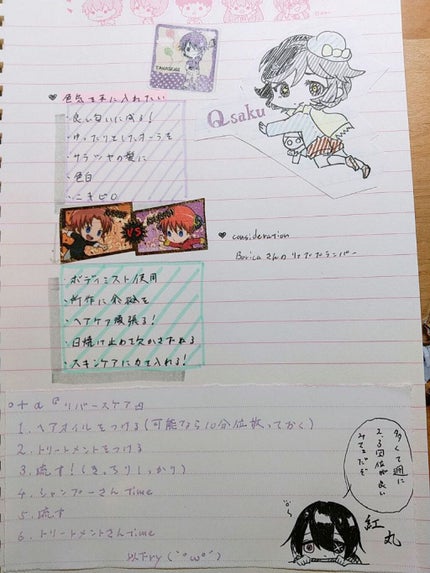 Qsaku
♥ 色気を手に入れたい
・良い匂いに成る！
・ゆったりとしたオーラを
・サラツヤの髪に
・色白
・ニキビ0
VS
♥ consideration
Boricaさんのリップブランパー
・ボディミスト使用
・所作に余裕を
・ヘアケア頑張る！
・日焼け止めを欠かさぬれる
・スキンケアに力を入れる！
+α リバースケア
1. ヘアオイルをつける(可能なら10分位放っておく)
2. トリートメントをつける
3. 流す！(きっちりしっかり)
4. シャンプーさんTime
5. 流す
6. トリートメントさんTime
以下try
多くて週に
2、3回位が良い
みてェだぞ
紅丸